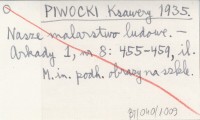 PIWOCKI Ksawery 1935.
Nasze malarstwo ludowe. –
Arkady 1, nr 8: 455-459, il.
M.in. podh. obrazy na szkle.
BJ/040/1009